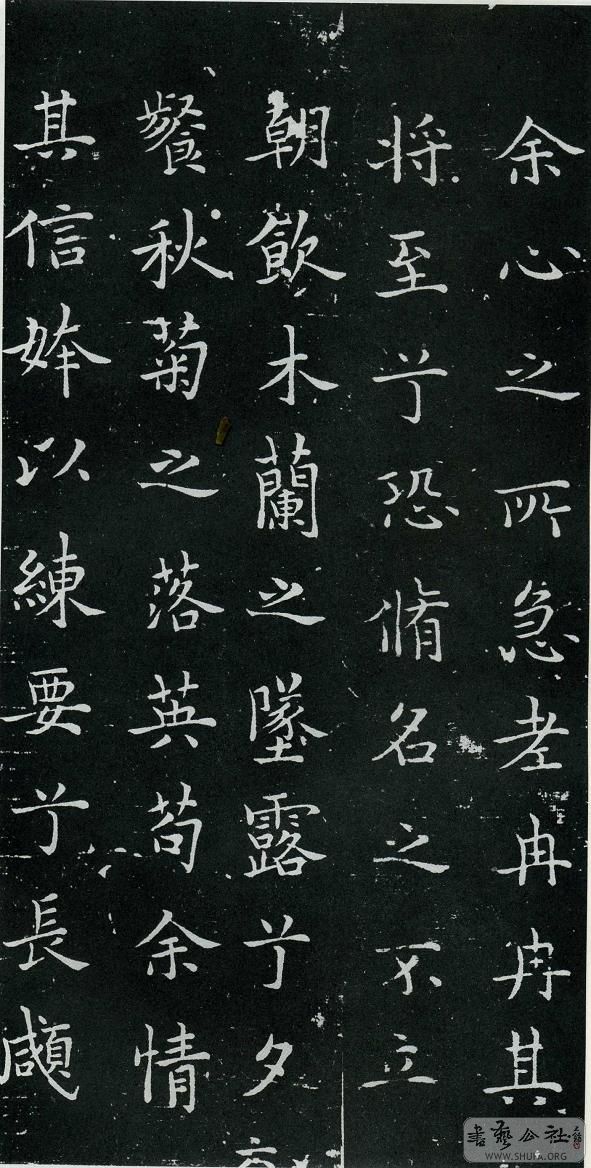 余心之所急老冉冉其
将至兮恐脩名之不立
朝飲木蘭之墜露兮夕
餐秋菊之落英苟余情
其信姱以練要兮長顑
書藝公社
WWW.SHUFA.ORG